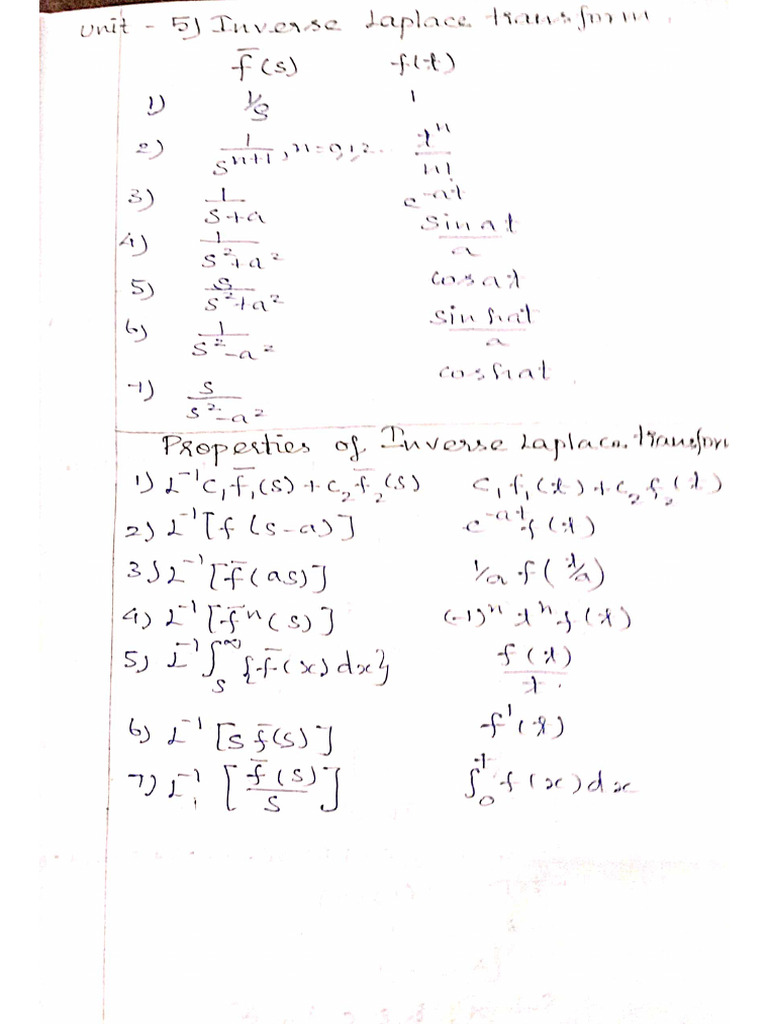 Unit - 5) Inverse Laplace transform.
f̄(s) f(t)
1) 1/s 1
2) 1/s^(n+1), n=0,1,2.. t^n/n!
3) 1/(s+a) e^(-at)
4) 1/(s²+a²) sin at/a
5) s/(s²+a²) cos at
6) 1/(s²-a²) sin hat/a
7) s/(s²-a²) cos hat.
Properties of Inverse Laplace transform
1) L⁻¹ c₁f̄₁(s) + c₂f̄₂(s) c₁f₁(t) + c₂f₂(t)
2) L⁻¹[f(s-a)] e^(-at) f(t)
3) L⁻¹[f̄(as)] 1/a f(t/a)
4) L⁻¹[f̄ⁿ(s)] (-1)ⁿ tⁿ f(t)
5) L⁻¹ ∫_s^∞ {f̄(x) dx} f(t)/t.
6) L⁻¹[s f̄(s)] f'(t)
7) L⁻¹[f̄(s)/s] ∫_0^t f(x) dx